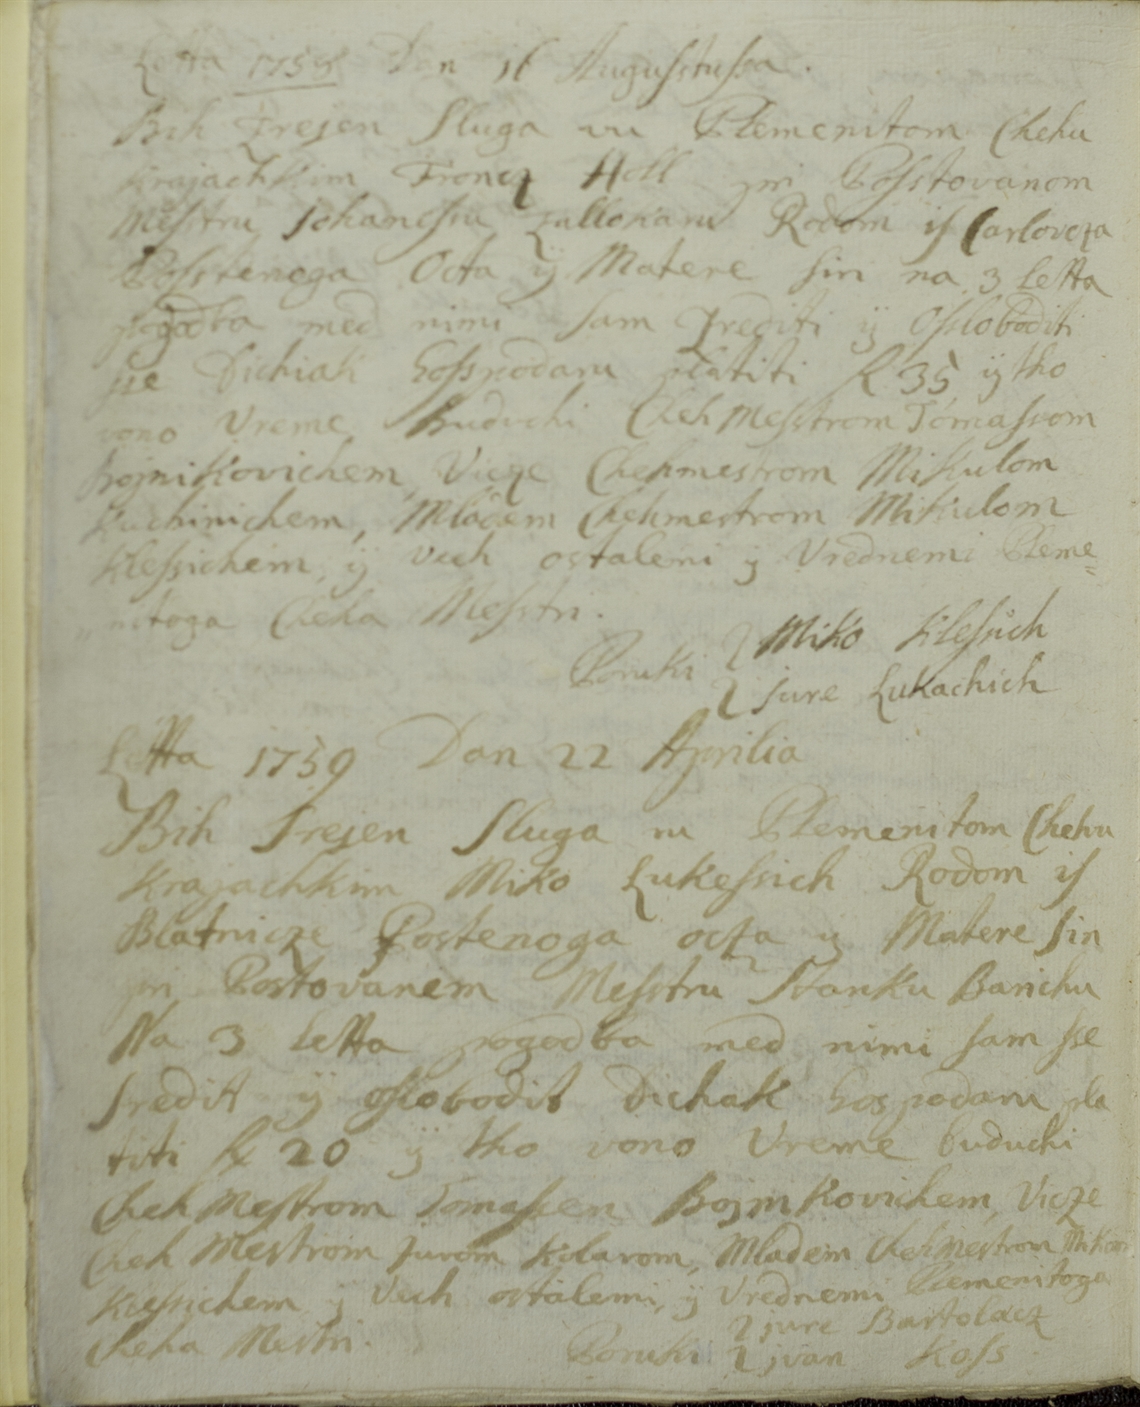 Letta 1758 Dan 16 Augusstussa.
Bih Srejen Sluga vu Plemenitom Chehu
Krajachkim Francz Holl pri Posstovanom
Messtru Johanessu Zallokaru Rodom is Carlovcza
Posstenega Octa ÿ Matere sin na 3 Letta
pogodba med nimi sam Srediti ÿ Osslobodity
sse Dichiak Gosspodaru platiti R 35 ÿ tko
vono Vreme Buduchi Cheh Messtrom Tomassom
Bojnikovichem, Vicze Chehmestrom Mikulom
Kuchinichem, Mladem Chehmestrom Mikulom
Klessichem, ÿ vseh ostalemi y Vrednemi Pleme=
„nitoga Cheha Messtri.
Poruki Miko Klessich
Jure Lukachich
Letta 1759 Dan 22 Aprilia
Bih Srejen Sluga vu Plemenitom Chehu
Krajachkim Miko Lukessich Rodom is
Blatnicze Postenoga octza y Matere Sin
pri Postovanem Messtru Stanku Barichu
Na 3 Letta pogodba med nimi sam sse
Sredit ÿ ossobodit Dichak Gospodaru pla
titi R 20 ÿ tko vono Vreme buduchi
Cheh Mestrom Tomassem Bojnikovichem, Vicze
Cheh Mestrom Jurom Kolarom, Mladem Chehmestrom
Klessichem y Vseh ostalemi, ÿ Vrednemi Plemenitoga
Cheha Mestri.
Poruki Jure Bartolacz
jvan Koss